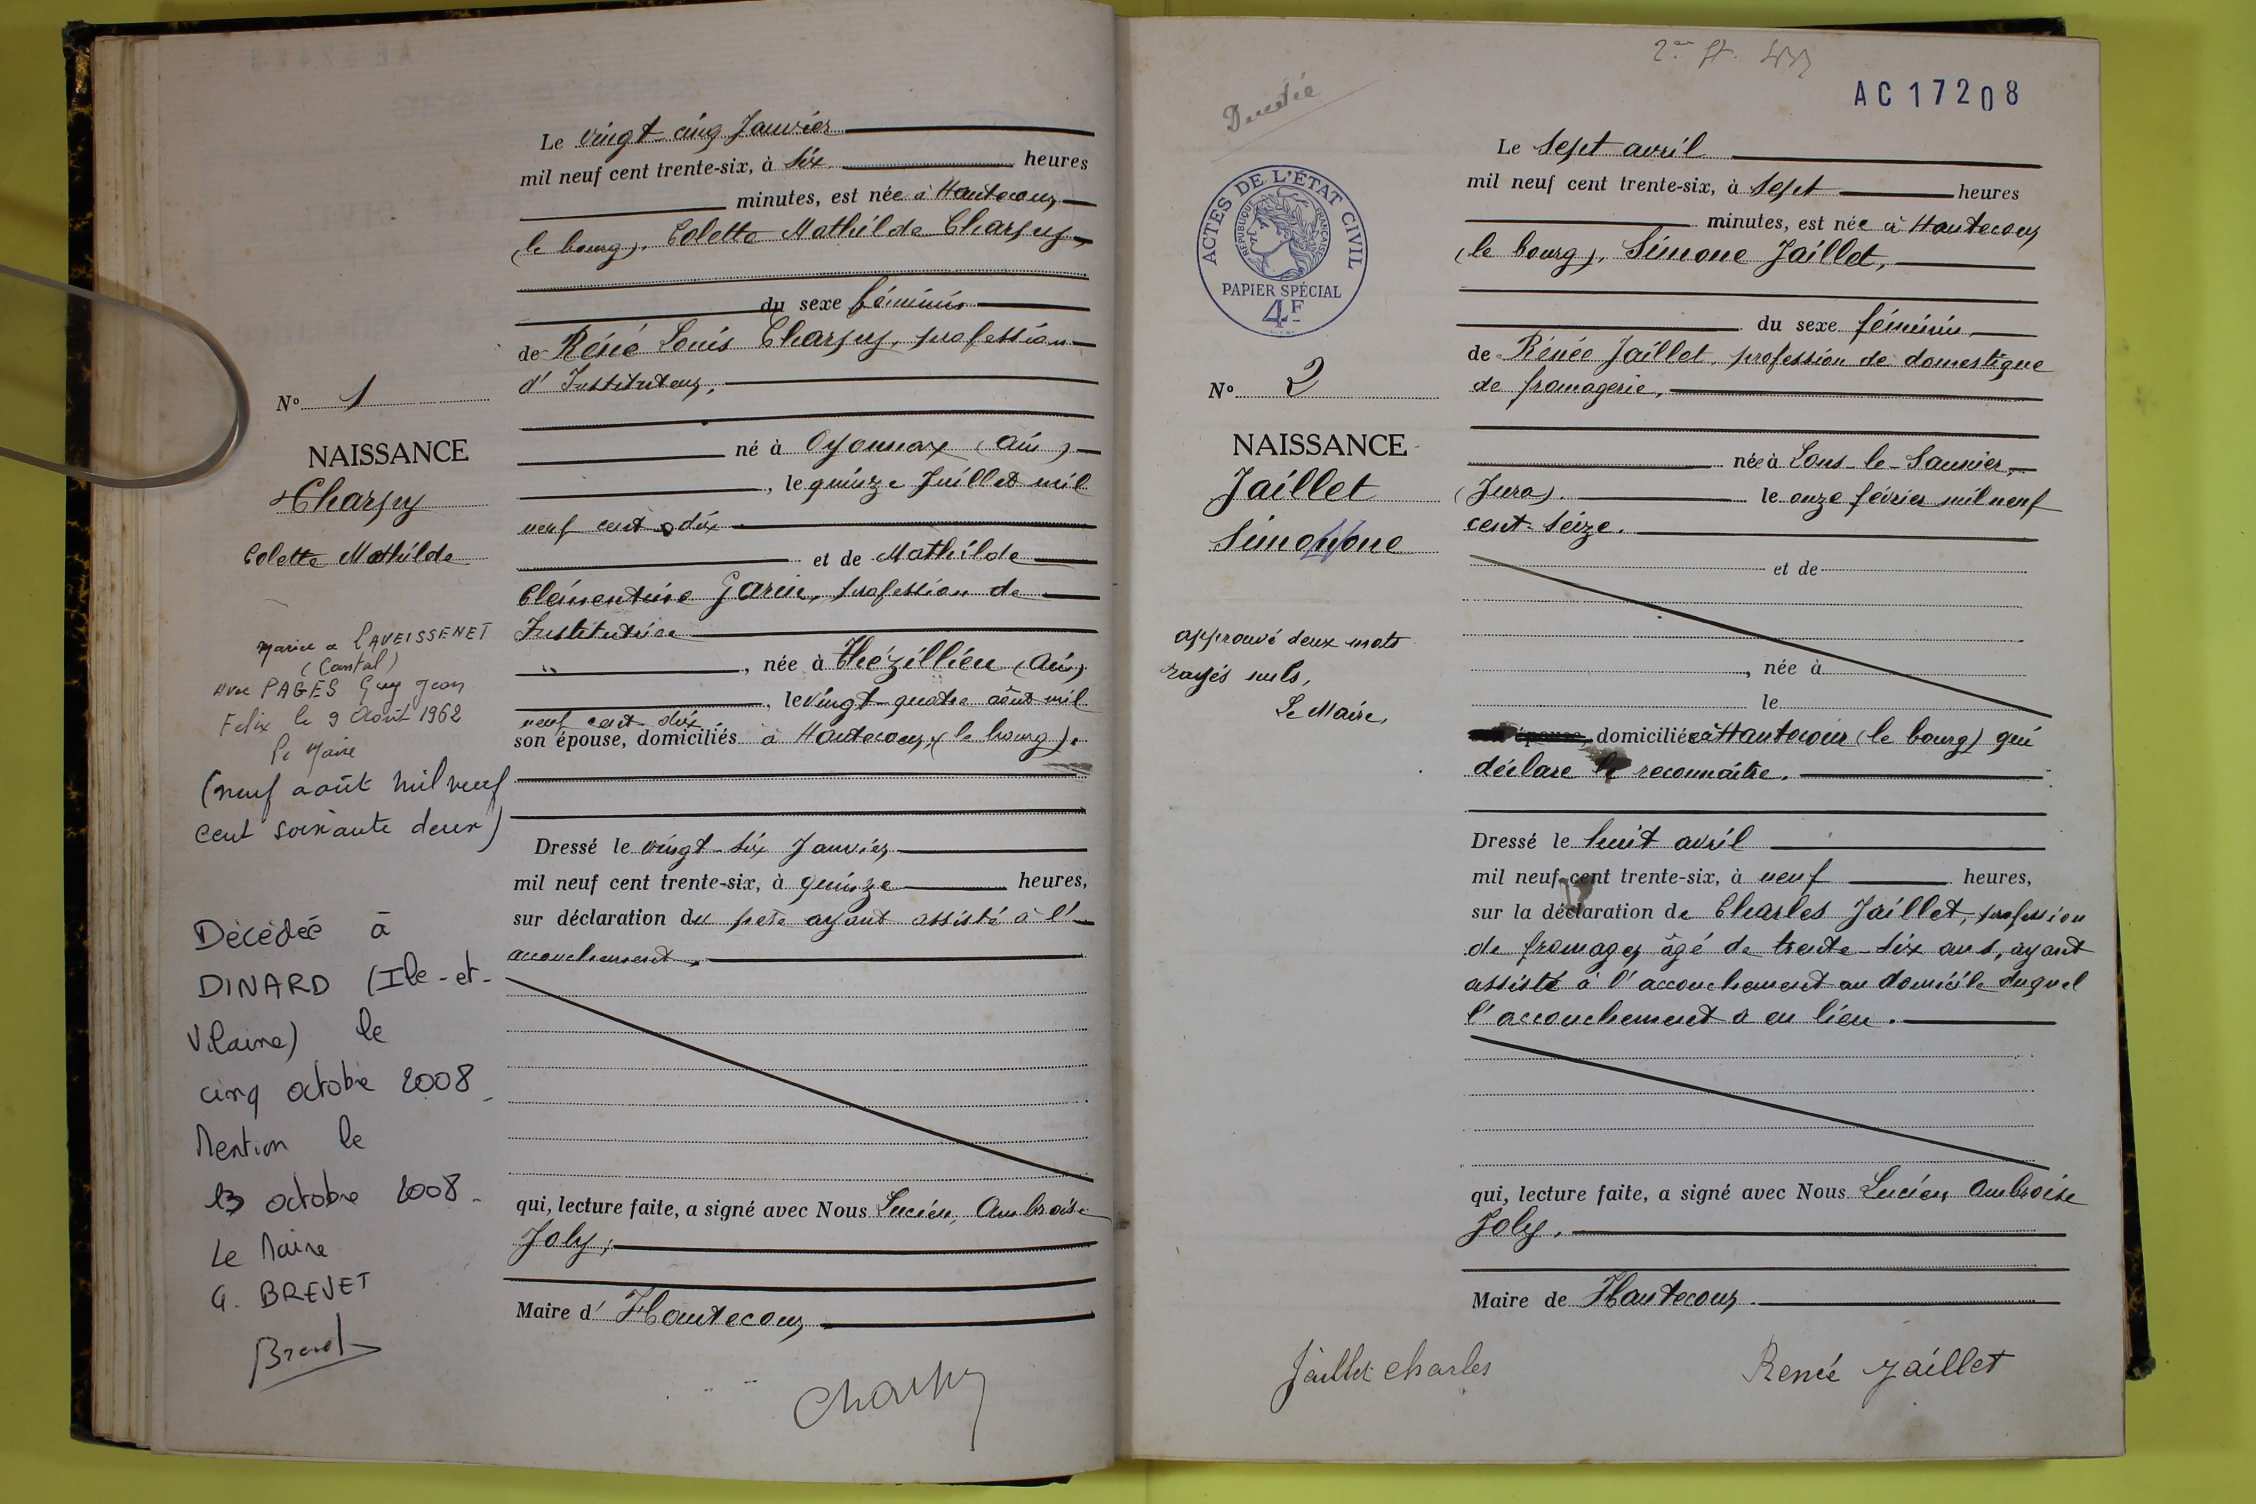 N° 1
NAISSANCE
Charpy
Colette Mathilde
Mariée à LAVEISSENET
(Cantal)
avec PAGES Guy Jean
Felix le 9 Août 1962
Le Maire
(neuf août mil neuf
cent soixante deux)
Décédée à
DINARD (Ile-et-
Vilaine) le
cinq octobre 2008
Mention le
13 octobre 2008.
Le Maire
G. BREVET
Brevet
Le vingt-cinq Janvier
mil neuf cent trente-six, à six heures
minutes, est née à Hautecour
(le bourg), Colette Mathilde Charpy
du sexe féminin
de Réné Louis Charpy, profession
d'Instituteur,
né à Oyonnax (Ain)
, le quinze Juillet mil
neuf cent dix
et de Mathilde
Clémentine Garin, profession de
Institutrice
" , née à Thézillieu (Ain)
, le vingt-quatre août mil
neuf cent dix
son épouse, domiciliés à Hautecour (le bourg).
Dressé le vingt-six Janvier
mil neuf cent trente-six, à quinze heures,
sur déclaration du père ayant assisté à l'
accouchement,
qui, lecture faite, a signé avec Nous Lucien, Ambroise
Joly,
Maire d'Hautecour
Charpy
AC17208
ACTES DE L'ÉTAT CIVIL
RÉPUBLIQUE FRANÇAISE
PAPIER SPÉCIAL
4F
N° 2
NAISSANCE
Jaillet
Simonone
approuvé deux mots
rayés nuls,
Le Maire,
Le sept avril
mil neuf cent trente-six, à sept heures
minutes, est née à Hautecour
(le bourg), Simone Jaillet,
du sexe féminin
de Rénée Jaillet, profession de domestique
de fromagerie,
née à Lons-le-Saunier,
(Jura). le onze février mil neuf
cent seize.
et de
, née à
le
épouse, domiciliée à Hautecour (le bourg) qui
déclare le reconnaître.
Dressé le huit avril
mil neuf cent trente-six, à neuf heures,
sur la déclaration de Charles Jaillet, profession
de fromager âgé de trente-six ans, ayant
assisté à l'accouchement au domicile duquel
l'accouchement a eu lieu.
qui, lecture faite, a signé avec Nous Lucien Ambroise
Joly.
Maire de Hautecour
Jaillet Charles
Renée Jaillet